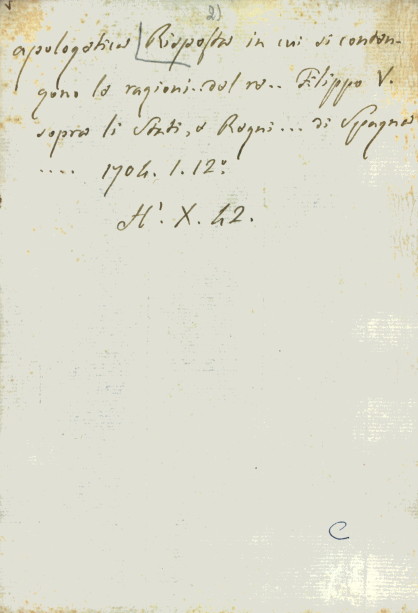 2)
apologetica Risposta in cui si conten-
gono le ragioni.. del re.. Filippo V.
sopra li Stati, e Regni... di Spagna
.... 1704. 1. 12°.
H'. X. 42.
C